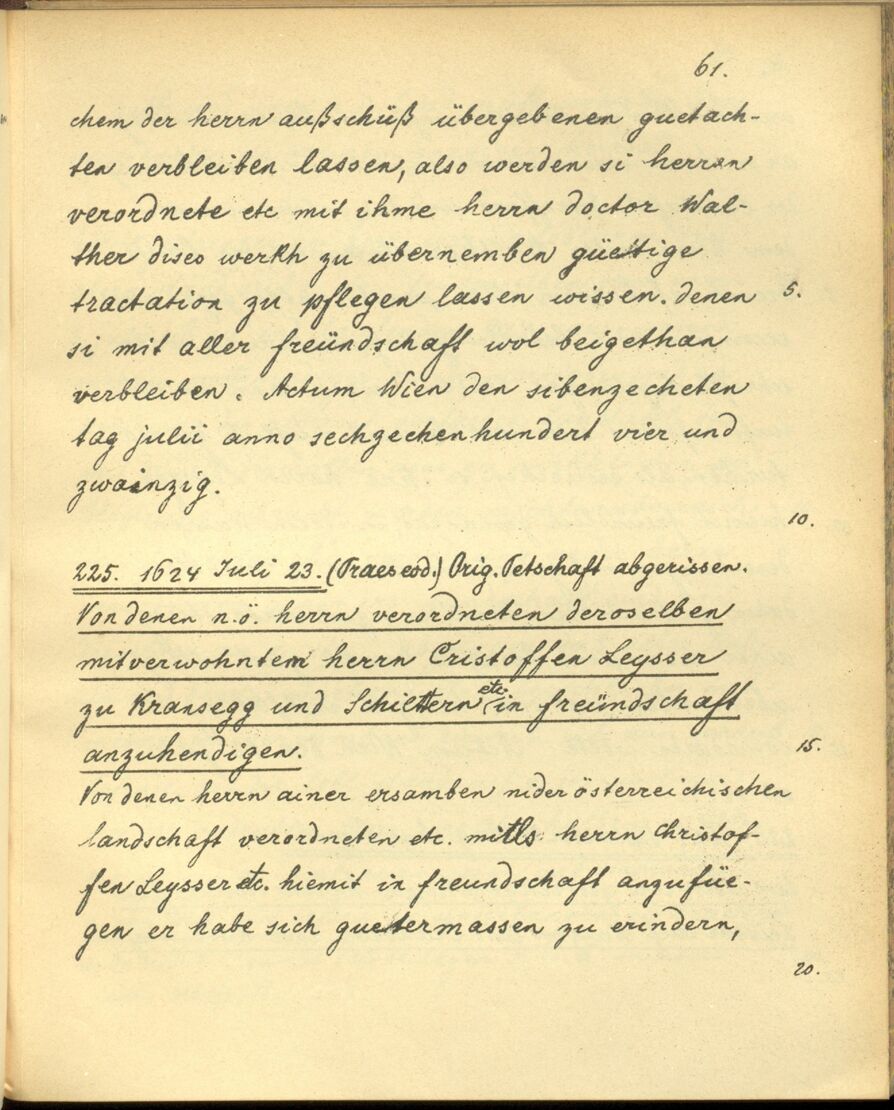 61.
chem der herrn außschüß übergebenen guetach-
ten verbleiben lassen, also werden si herren
verordnete etc mit ihme herrn doctor Wal-
ther dises werkh zu übernemben güetige
tractation zu pflegen lassen wissen. denen 5.
si mit aller freündschaft wol beigethan
verbleiben. Actum Wien den sibenzecheten
tag julii anno sechzechenhundert vier und
zwainzig.
10.
225. 1624 Juli 23. (Praes eod.) Orig. Petschaft abgerissen.
Von denen n.ö. herrn verordneten deroselben
mitverwohntem herrn Cristoffen Leysser
zu Kransegg und Schiltern etc. in freündschaft
anzuhendigen. 15.
Von denen herrn ainer ersamben nider österreichischen
landschaft verordneten etc. mitls herrn Christof-
fen Leysser etc. hiemit in freundschaft anzufüe-
gen er habe sich guetermassen zu erindern,
20.